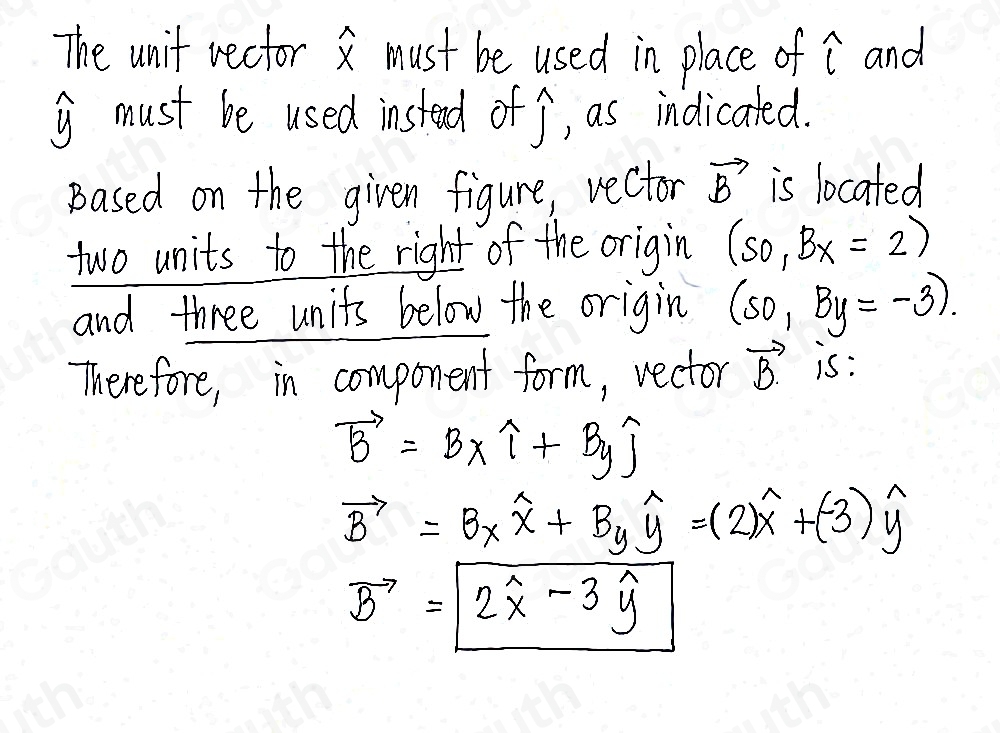 The unit vector x̂ must be used in place of î and
ŷ must be used instead of ĵ, as indicated.
Based on the given figure, vector B⃗ is located
two units to the right of the origin (so, Bx = 2)
and three units below the origin (so, By = -3).
Therefore, in component form, vector B⃗ is:
B⃗ = Bx î + By ĵ
B⃗ = Bx x̂ + By ŷ = (2)x̂ + (-3)ŷ
B⃗ = 2x̂ - 3ŷ
Gauth